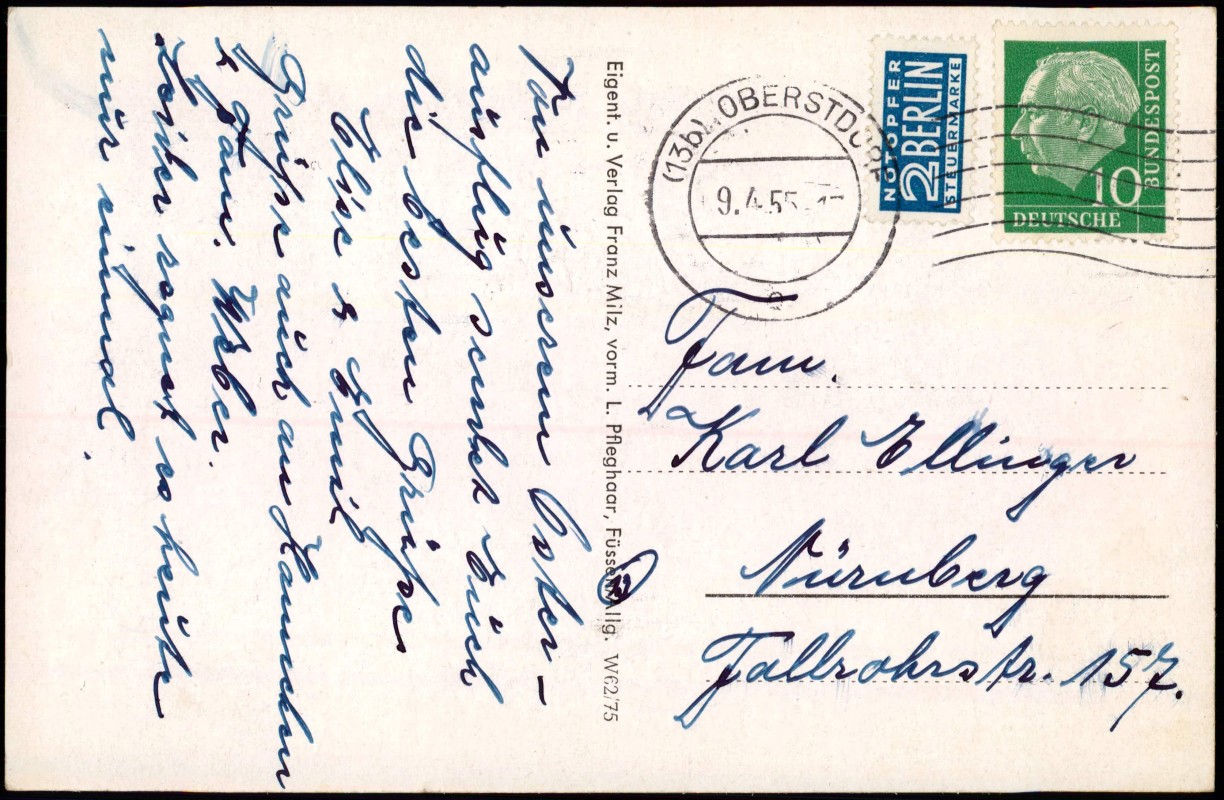 Von unserem Oster-
ausflug sendet Euch
die besten Grüße
Elise & Emil
Grüße auch an Hannchen
& Fam. Weber.
Leider regnet es heute
nur einmal.
Eigent. u. Verlag Franz Milz, vorm. L. Pfleghaar, Füssen/Allg. W62/75
12
(13b) OBERSTDORF
9.4.55
c
NOTOPFER
2 BERLIN
STEUERMARKE
BUNDESPOST
10
DEUTSCHE
Fam.
Karl Ellinger
Nürnberg
Fallrohrstr. 157.